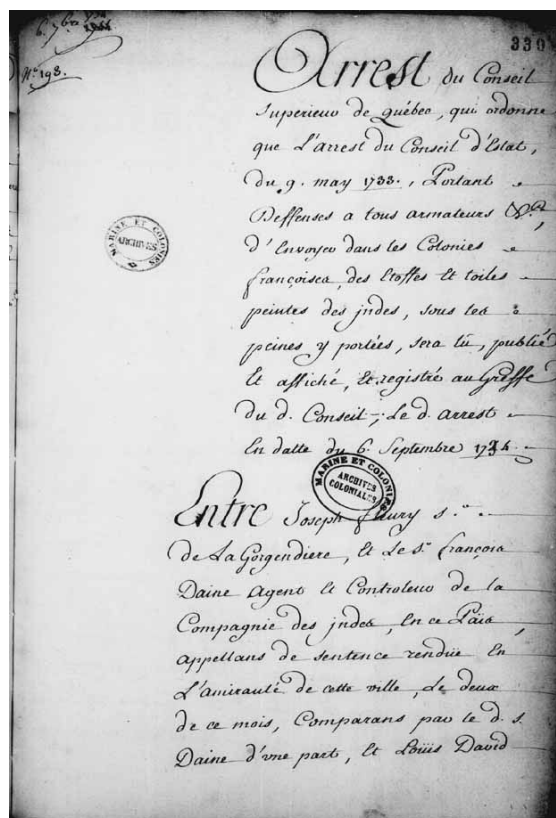 6. 7bre 1734
N.° 198.
330
Arrest du Conseil
Superieur de Québec, qui ordonne
que L'arrest du Conseil d'Estat,
du 9. may 1733., Portant
Deffenses a tous armateurs &a,
d'Envoyer dans les Colonies
françoises, des Etoffes Et toiles
peintes des jndes, sous les
peines y portées, sera lû, publié
Et affiché, Et registré au Greffe
du d. Conseil; Le d. arrest
En datte du 6. Septembre 1734.
MARINE ET COLONIES
ARCHIVES
MARINE ET COLONIES
ARCHIVES
COLONIALES
Entre Joseph fleury s.r
de La Gorgendiere, Et Le Sr. françois
Daine Agent Et Controleur de la
Compagnie des jndes, En ce Païs,
appellans de sentence rendüe En
L'amirauté de cette ville, Le deux
de ce mois, Comparans par le d. s.
Daine d'vne part, Et Loüis David